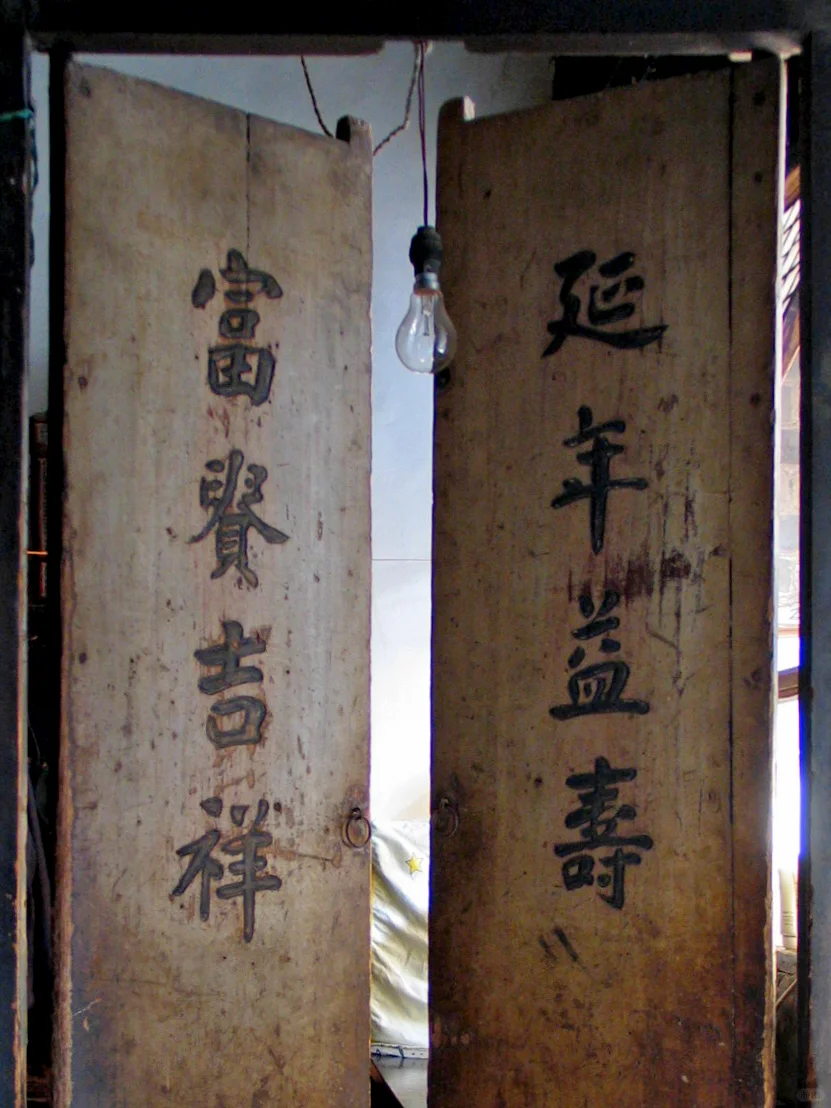 延年益壽
富貴吉祥